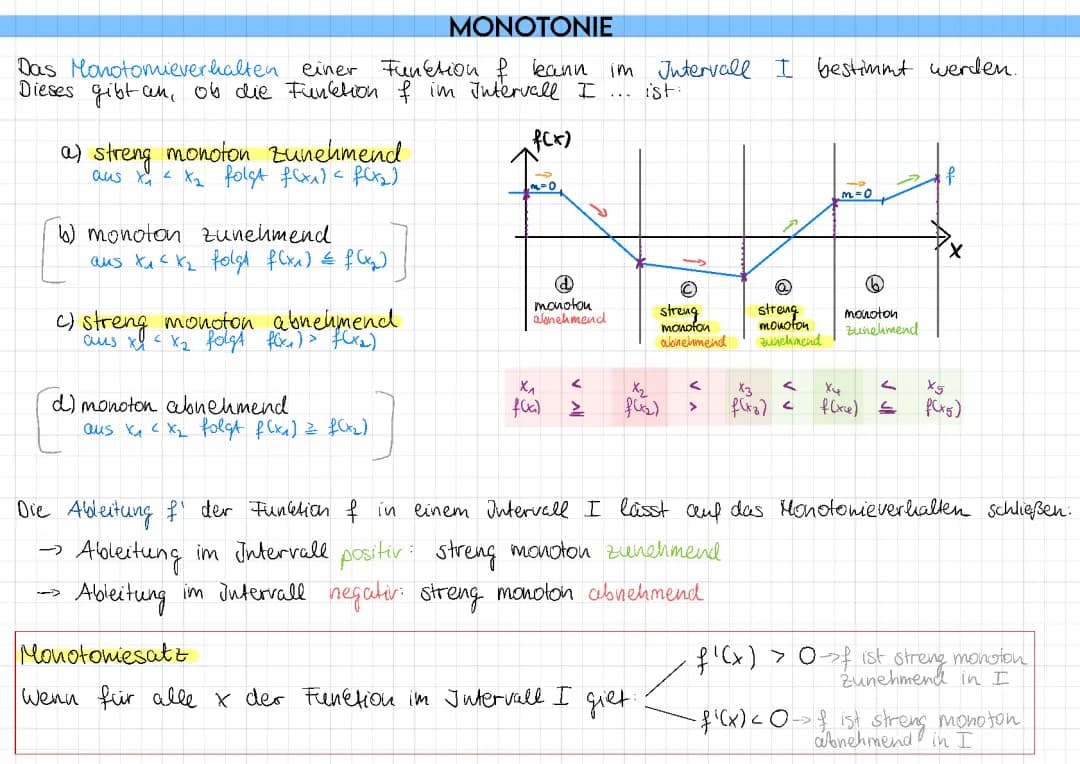 MONOTONIE
Das Monotonieverhalten einer Funktion f kann im Intervall I bestimmt werden.
Dieses gibt an, ob die Funktion f im Intervall I ... ist:
a) streng monoton zunehmend
aus x₁ < x₂ folgt f(x₁) < f(x₂)
b) monoton zunehmend
aus x₁ < x₂ folgt f(x₁) ≤ f(x₂)
c) streng monoton abnehmend
aus x₁ < x₂ folgt f(x₁) > f(x₂)
d) monoton abnehmend
aus x₁ < x₂ folgt f(x₁) ≥ f(x₂)
f(x)
m=0
m=0
f
x
d
monoton
abnehmend
c
streng
monoton
abnehmend
a
streng
monoton
zunehmend
b
monoton
zunehmend
x₁ < x₂ < x₃ < x₄ < x₅
f(x₁) ≥ f(x₂) > f(x₃) < f(x₄) ≤ f(x₅)
Die Ableitung f' der Funktion f in einem Intervall I lässt auf das Monotonieverhalten schließen:
→ Ableitung im Intervall positiv: streng monoton zunehmend
→ Ableitung im Intervall negativ: streng monoton abnehmend
Monotoniesatz
Wenn für alle x der Funktion im Intervall I gilt:
f'(x) > 0 → f ist streng monoton
zunehmend in I
f'(x) < 0 → f ist streng monoton
abnehmend in I